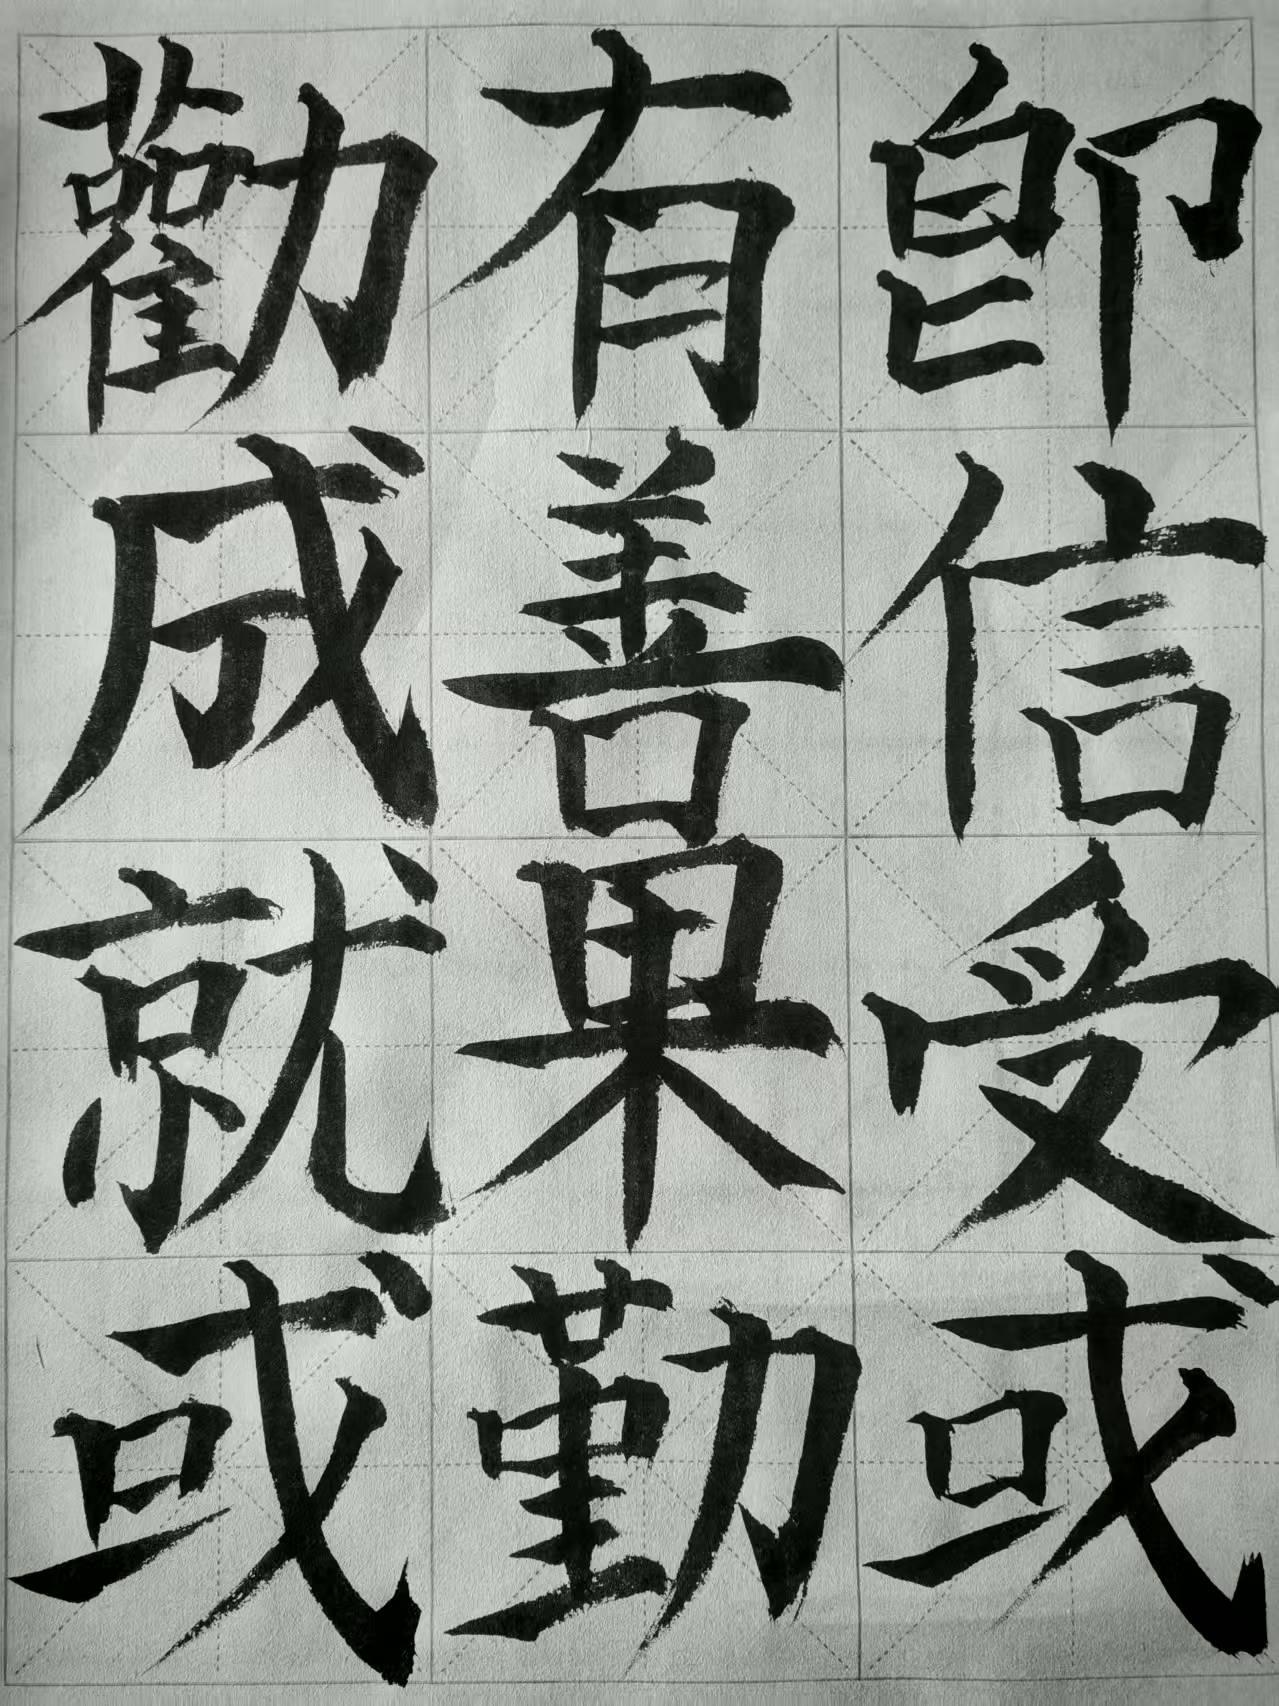 即信受或
有善果勤
勸成就或